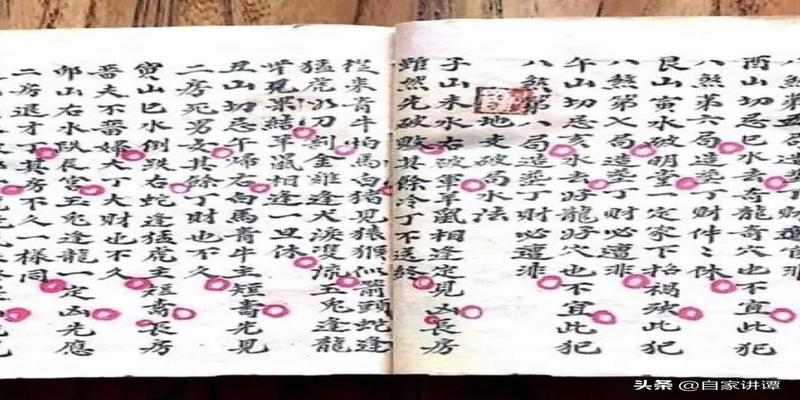 酉山切忌巳水去奇龍奇穴也不宜此犯
八煞第六局造塟丁財件〻休
艮山寅水破明堂一定家下招禍殃此犯
八煞第七局造塟丁財必遭非
午山切忌亥水去好龍好穴也不宜此犯
八煞第八局造塟丁財必遭非
地支破局水法
子山未水右破軍羊鼠相逢定見凶長房
雖然先破敗其餘冷丁不送終
從來青牛怕馬白猪見猿猴似箭頭蛇逢
猛虎如刀金雞逢犬淚雙流玉兔逢龍
常見結羊鼠相逢一旦休
丑山切忌午歸右白馬青牛主短壽先見
二房死男女其餘丁財也不久
寅山巳水倒跌右蛇逢猛虎主短壽長房
晋夫不晋婦大丁大財也不久
卯山右水跌辰宮玉兔逢龍一定凶先應
二房退才丁其房不久一樣同
头条 @自家讲谭